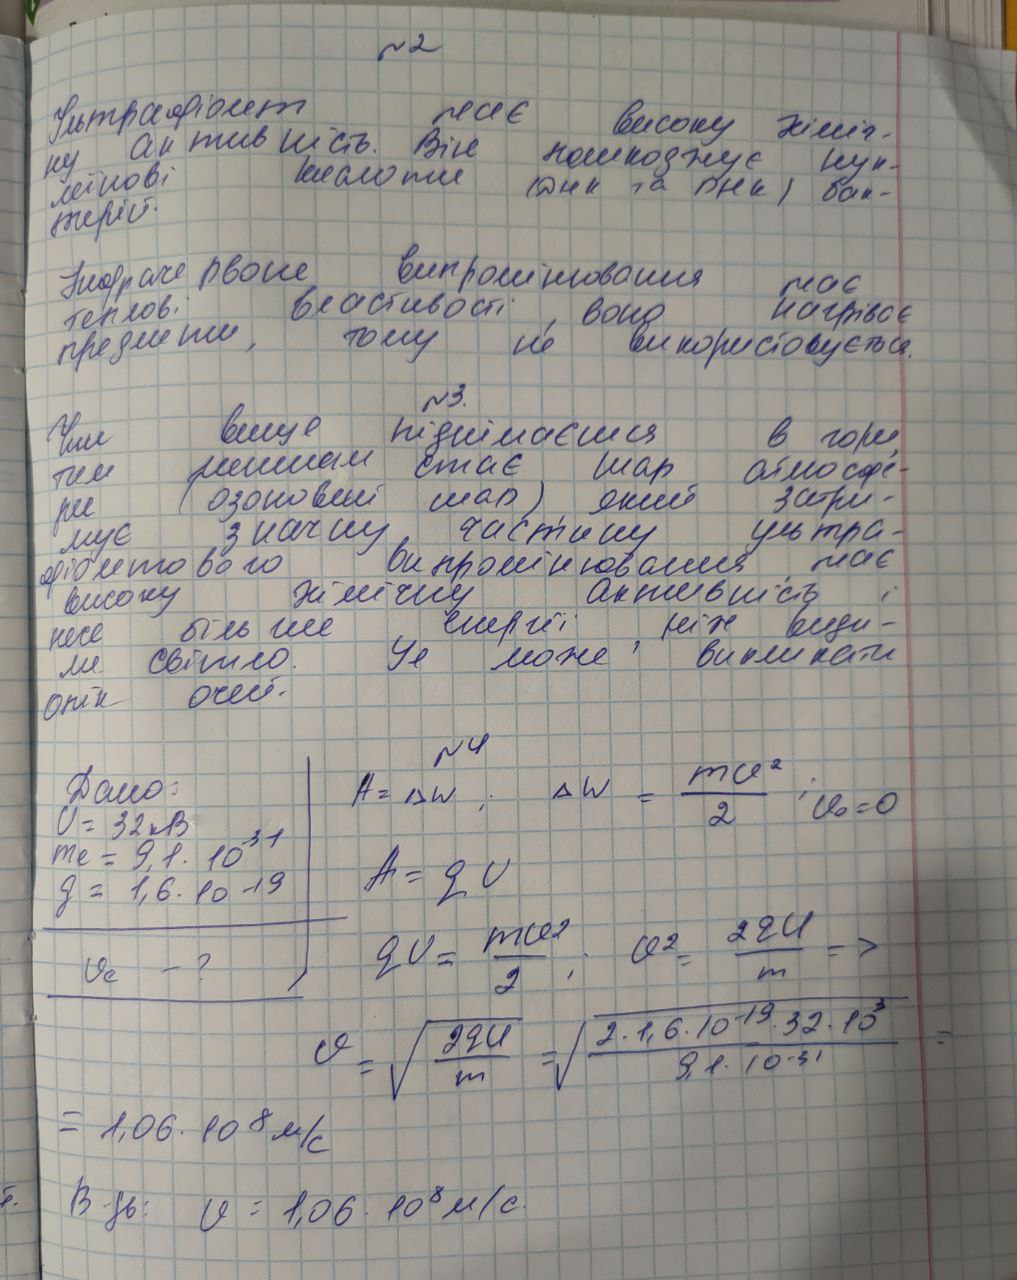 №2
Ультрафіолет має високу хіміч-
ну активність. Він пошкоджує нук-
леїнові кислоти (ДНК та РНК) бак-
терій.
Інфрачервоне випромінювання має
теплові властивості, воно нагріває
предмети, тому не використовується.
№3.
Чим вище піднімаємся в гори,
тим меншим стає шар атмосфе-
ри (озоновий шар) який затри-
мує значну частину ультра-
фіолетового випромінювання, має
високу хімічну активність і
несе більше енергії ніж види-
ме світло. Це може викликати
опік очей.
№4
Дано:
U = 32кВ
me = 9,1 · 10^-31
q = 1,6 · 10^-19
υe - ?
A = ΔW ; ΔW = mυ²/2 ; υ₀ = 0
A = qU
qU = mυ²/2 ; υ² = 2qU/m =>
υ = √(2qU/m) = √(2·1,6·10^-19·32·10^3/9,1·10^-31) =
= 1,06 · 10^8 м/с
В-дь: υ = 1,06 · 10^8 м/с.